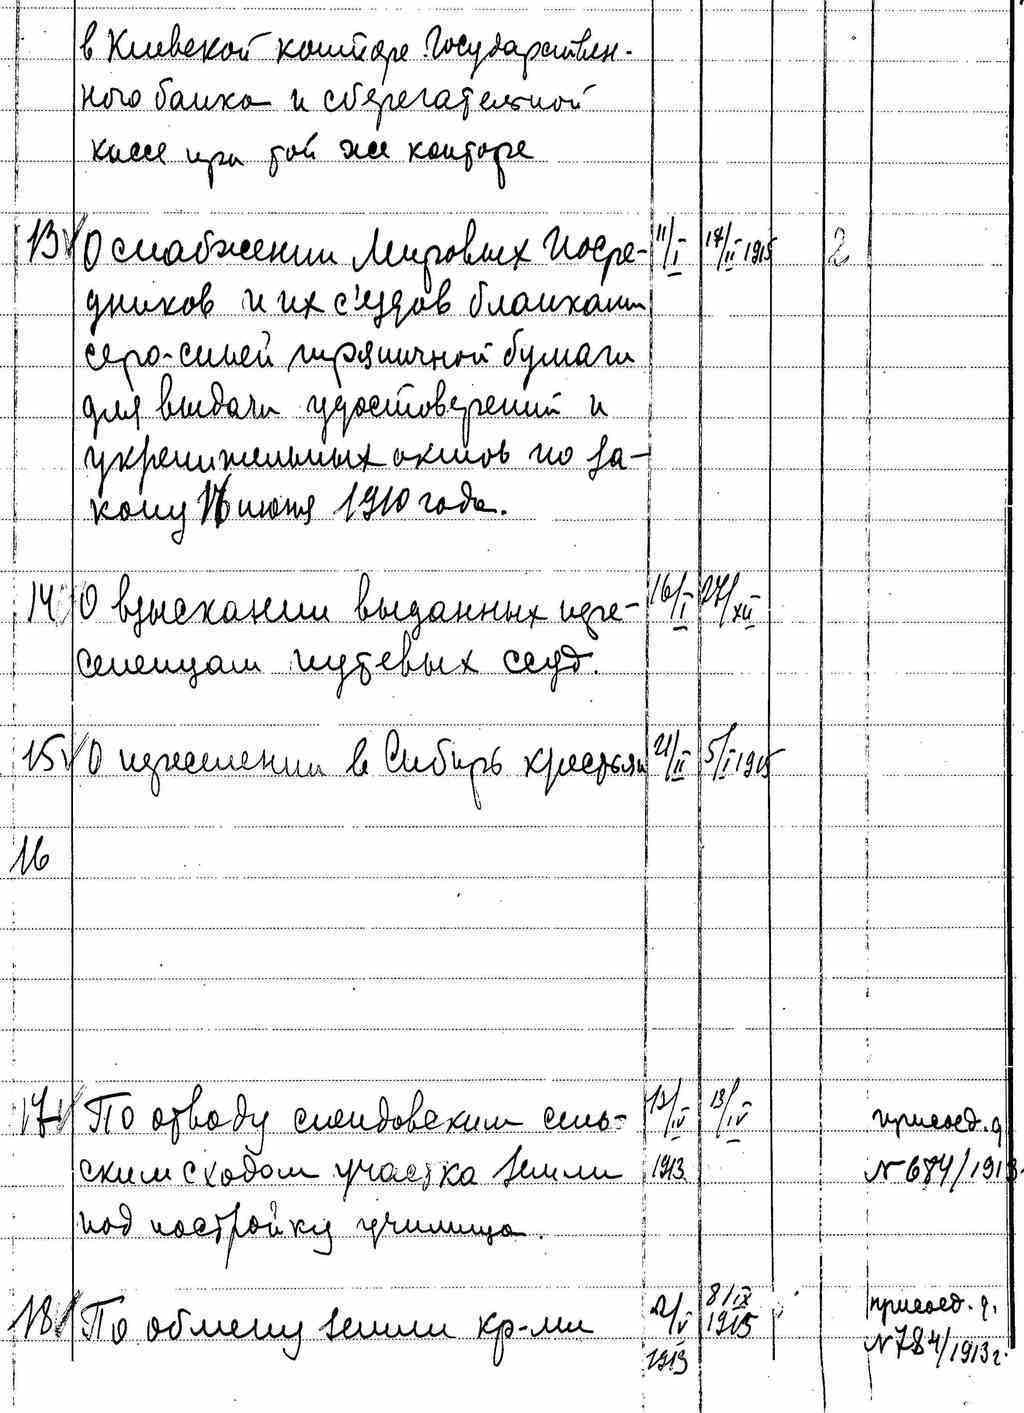 в Киевской конторе Государствен-
ного банка и сберегательной
кассе при той же конторе
13 О снабжении Мировых Посре- 11/I 17/II 1915 2
дников и их с'ездов бланками
серо-синей пряничной бумаги
для выдачи удостоверений и
укрепительных актов по за-
кону 14 июня 1910 года.
14 О взыскании выданных пере- 16/I 27/XII
селенцам путевых ссуд.
15 О переселении в Сибирь крестьян 21/II 5/I 1915
16
17 По отводу сельским 12/IV 13/IV присоед. д
ским сходом участка земли 1913 N 684/1913
под постройку училища.
18 По обмену земли кр-ми 2/V 8/IX 1915 присоед. д.
1913 N 784/1913 г.